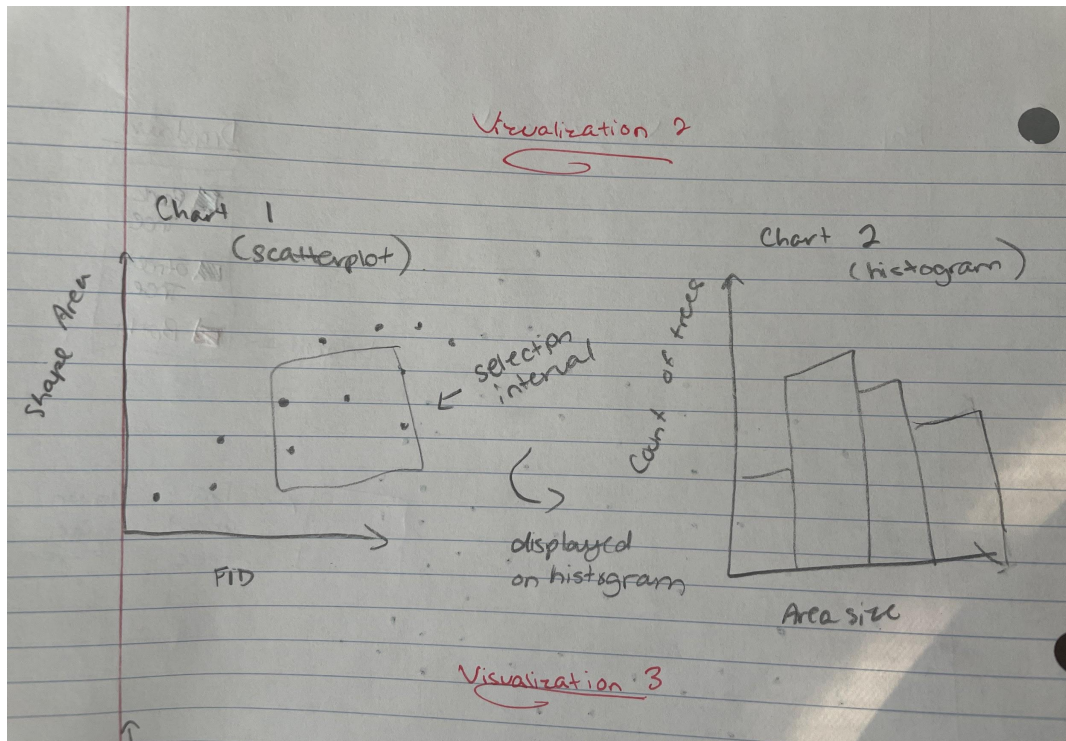 Vizualization 2
Chart 1
(scatterplot)
Shape Area
selection
interval
FID
displayed
on histogram
Chart 2
(histogram)
Count of trees
Area size
Visualization 3